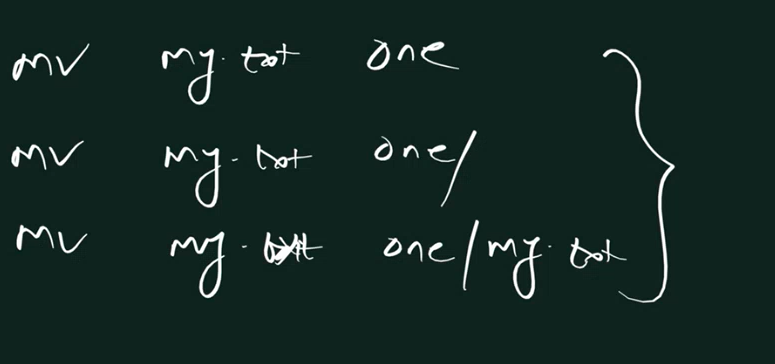 mv my.txt one
mv my.txt one/
mv my.txt one/my.txt